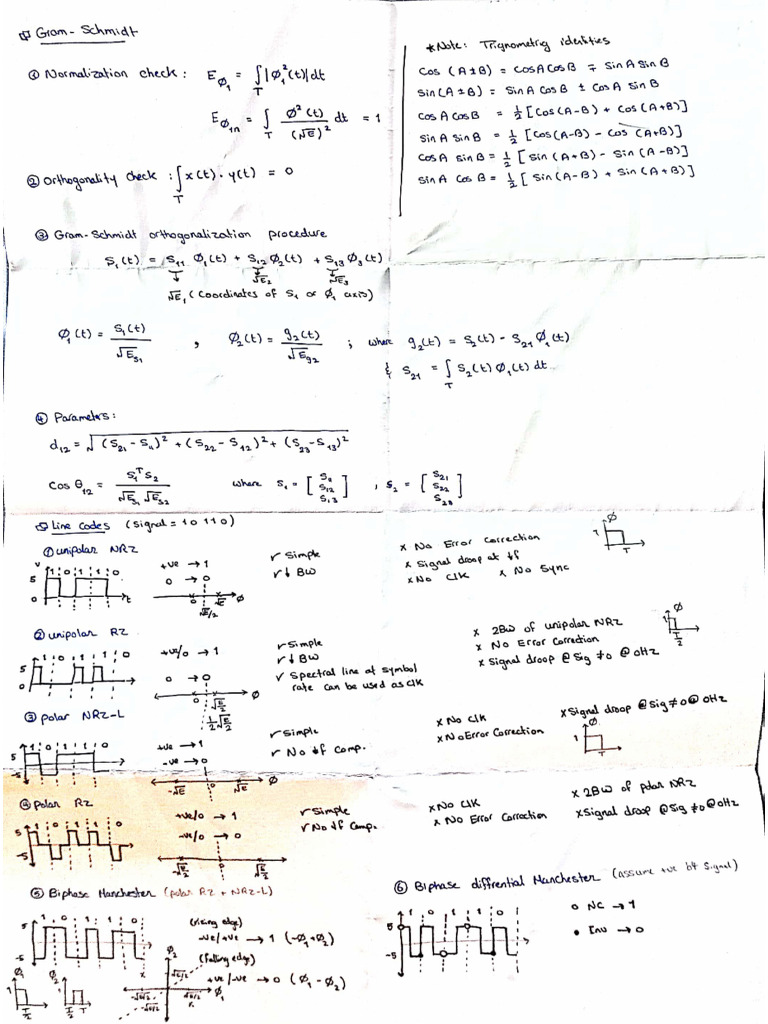 Gram-Schmidt
① Normalization check: E_ϕ1 = ∫_T |ϕ_1²(t)|dt
E_ϕ1n = ∫_T ϕ²(t)/(√E)² dt = 1
② Orthogonality check: ∫_T x(t)·y(t) = 0
*Note: Trignometriq identities
Cos (A±B) = cosAcosB ∓ SinASinB
Sin(A±B) = SinA CosB ± CosA SinB
CosACosB = 1/2 [Cos(A-B) + Cos(A+B)]
SinA SinB = 1/2 [Cos(A-B) - Cos (A+B)]
CosA SinB = 1/2 [Sin(A+B) - Sin(A-B)]
SinA CosB = 1/2 [Sin(A-B) + Sin(A+B)]
③ Gram-Schmidt orthogonalization procedure
S_1(t) = S_11 ϕ_1(t) + S_12 ϕ_2(t) + S_13 ϕ_3(t)
√E_2 √E_3
√E_1 (Coordinates of S_1 or ϕ_1 axis)
ϕ_1(t) = S_1(t)/√E_S1 , ϕ_2(t) = g_2(t)/√E_g2 ; where g_2(t) = S_2(t) - S_21 ϕ_1(t)
& S_21 = ∫_T S_2(t) ϕ_1(t) dt
④ Parameters:
d_12 = √(S_21 - S_11)² + (S_22 - S_12)² + (S_23 - S_13)²
Cos θ_12 = S_1^T S_2/√E_S1 √E_S2 where S_1 = [S_11 S_12 S_13] , S_2 = [S_21 S_22 S_23]
Line Codes (Signal = 10 110)
① unipolar NRZ
V 5 0 1 0 1 1 0 t
+ve → 1
0 → 0
0 √E/2 √E ϕ
✓ Simple
✓ ↓ BW
x No Error Correction
x Signal droop at ↓f
x No Clk x No Sync
ϕ 1 T
② unipolar RZ
5 0 1 0 1 1 0
+ve/0 → 1
0 → 0
0 √E/2 1/2 √E/2 ϕ
✓ Simple
✓ ↓ BW
✓ Spectral line at symbol
rate can be used as Clk
x 2BW of unipolar NRZ
x No Error Correction
x Signal droop @ Sig ≠0 @ 0Hz
ϕ 1 T/2
③ polar NRZ-L
5 -5 1 0 1 1 0
+ve → 1
-ve → 0
-√E 0 √E ϕ
✓ Simple
✓ No ↓f Comp.
x No Clk
x No Error Correction
x Signal droop @ Sig≠0 @ 0Hz
ϕ 1 T
④ polar RZ
5 -5 1 0 1 1 0
+ve/0 → 1
-ve/0 → 0
-√E/2 0 √E/2
✓ Simple
✓ No ↓f Comp.
x No Clk
x No Error Correction
x 2BW of polar NRZ
x Signal droop @ Sig ≠0 @ 0Hz
⑤ Biphase Manchester (polar RZ + NRZ-L)
5 -5 1 0 1 1 0
(rising edge)
-ve/+ve → 1 (-ϕ_1+ϕ_2)
(falling edge)
+ve/-ve → 0 (ϕ_1-ϕ_2)
ϕ_1 1 T/2
ϕ_2 1 T/2 T
ϕ_2 √E/2 -√E/2 √E/2 -√E/2 ϕ_1
⑥ Biphase diffrential Manchester (assume +ve bf Signal)
5 -5 1 0 1 1 0
○ NC → 1
● Inv → 0